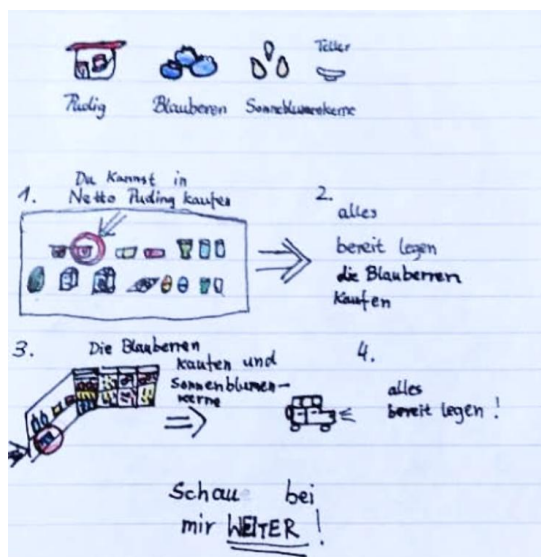 Teller
Pudig Blauberen Sonneblumenkerne
1. Du kannst in
Netto Puding kaufen
2.
alles
bereit legen
die Blauberren
Kaufen
3. Die Blauberren
kaufen und
Sonnenblumen-
kerne
4.
alles
bereit legen!
Schau bei
mir WEITER!